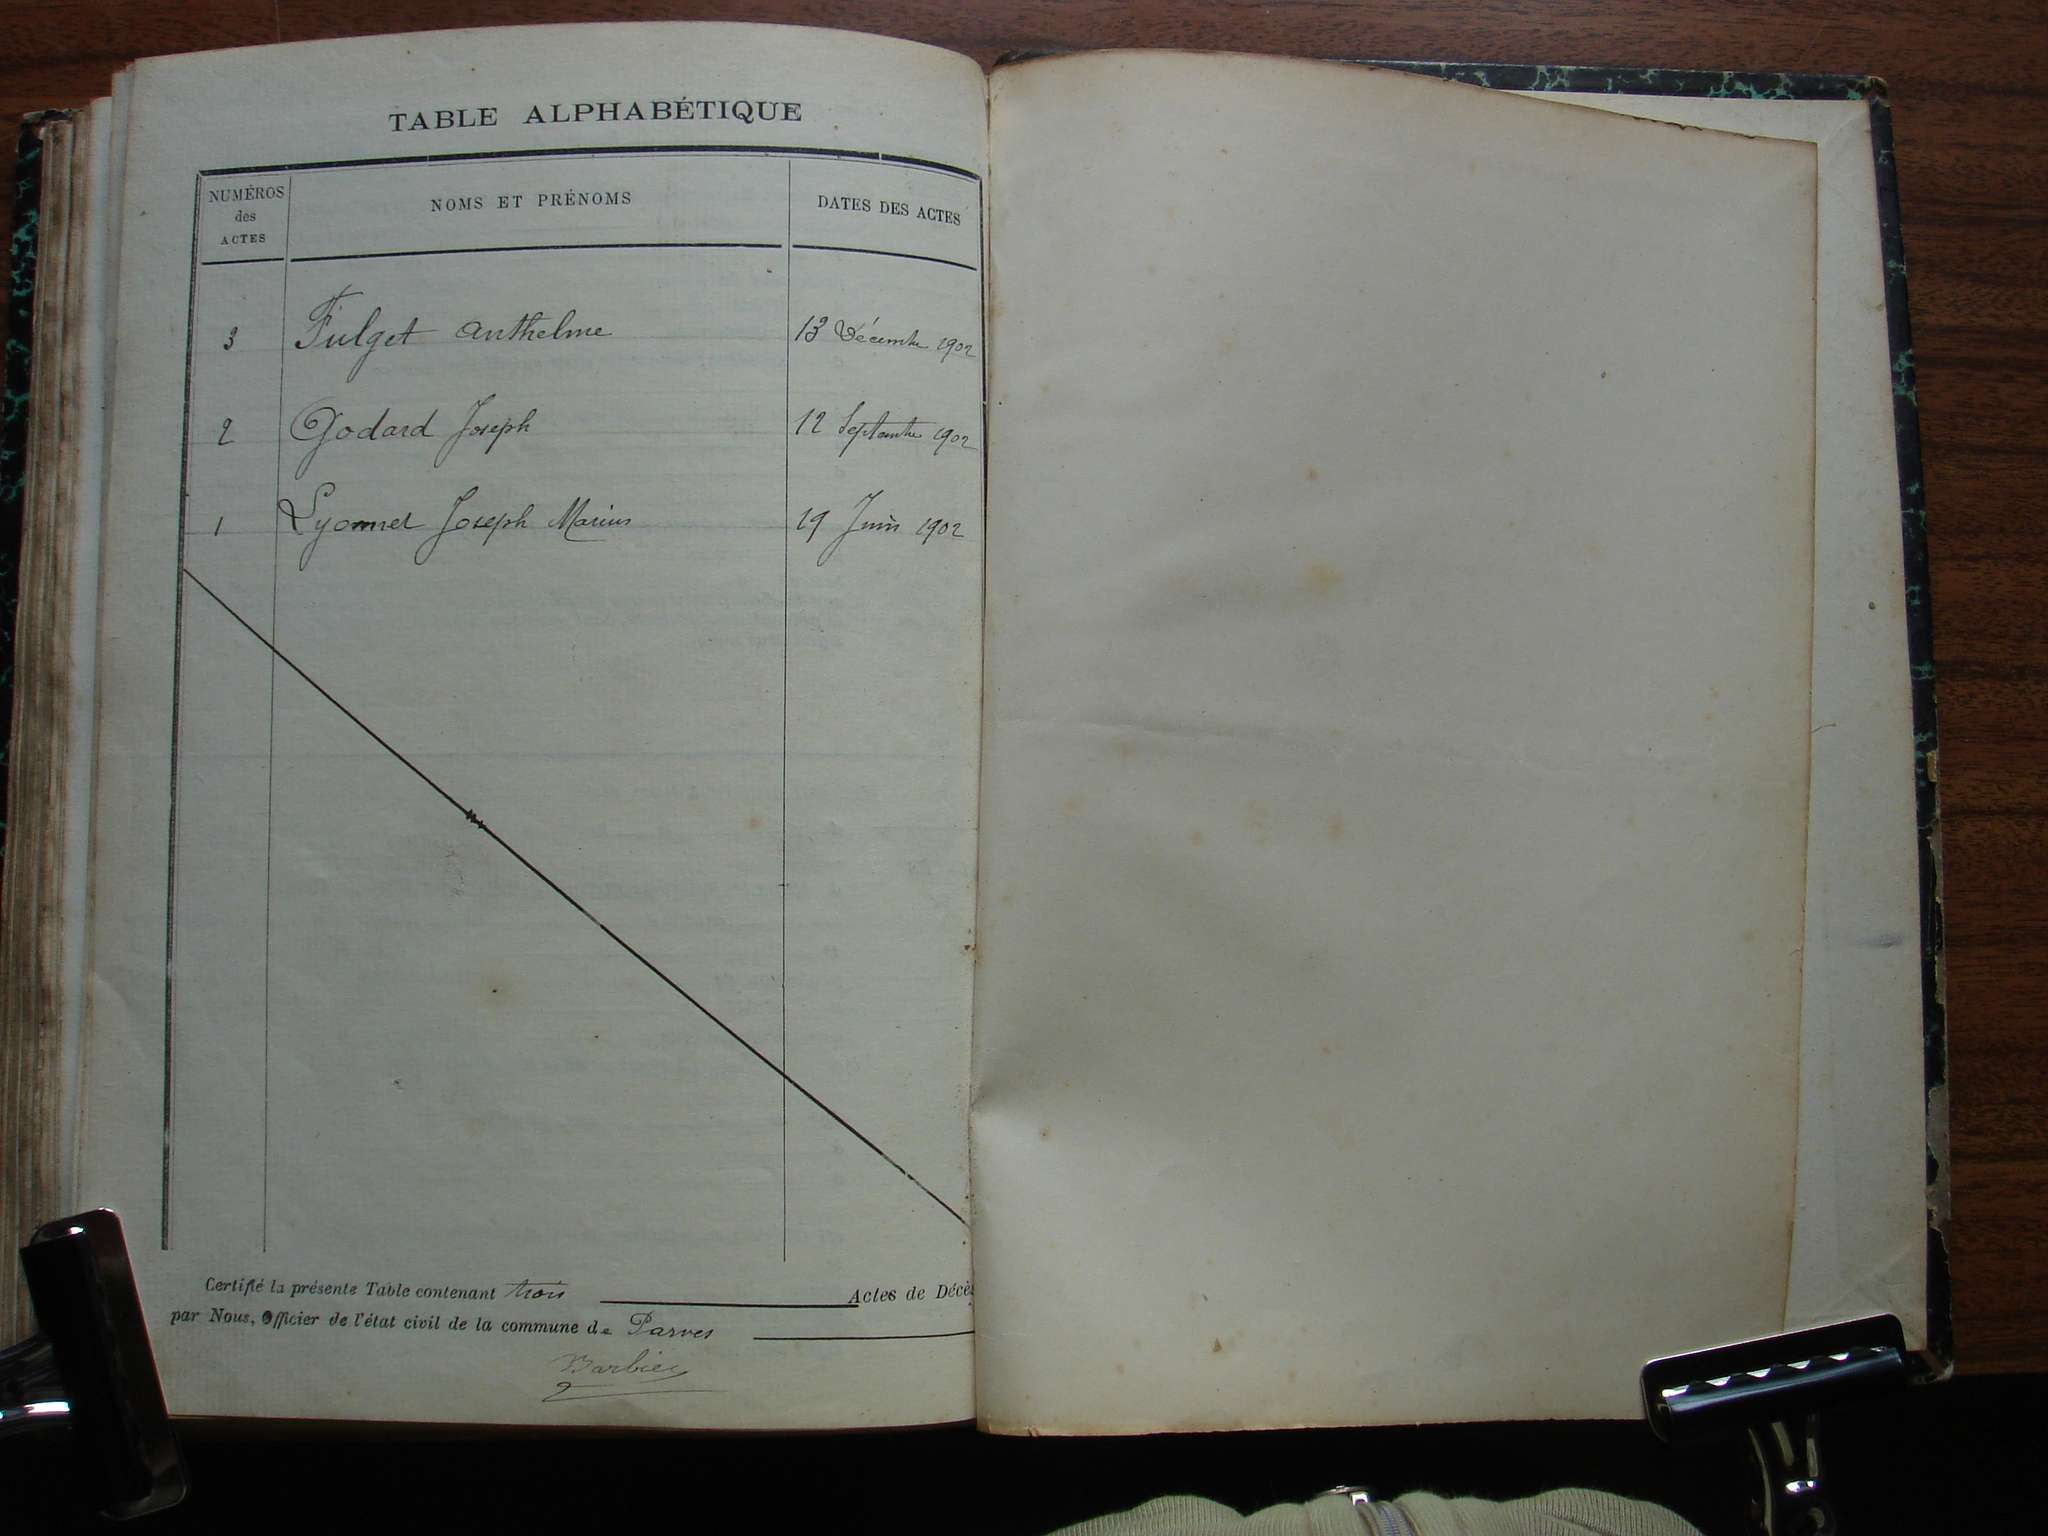 TABLE ALPHABÉTIQUE
NUMÉROS des ACTES NOMS ET PRÉNOMS DATES DES ACTES
3 Fulget Anthelme 13 Décembre 1902
2 Godard Joseph 12 Septembre 1902
1 Lyonnet Joseph Marius 19 Juin 1902
Certifié la présente Table contenant trois Actes de Décès
par Nous, Officier de l'état civil de la commune de Parves
Barbier